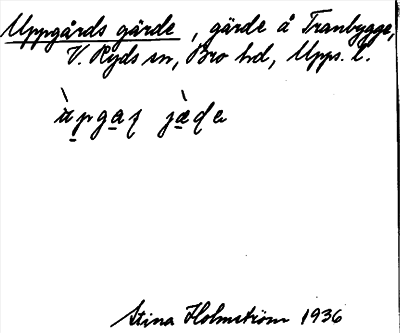 Uppgårds gärde, gärde å Tranbygge,
V. Ryds sn, Bro hd, Upps. l.
ùpgaʂ jæ̀ɖe
Stina Holmström 1936